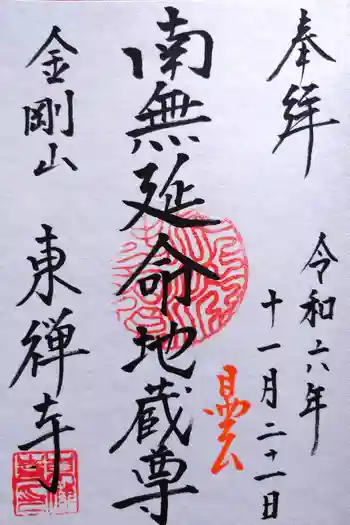 奉拝
令和六年
十一月二十一日
南無延命地蔵尊
曇
金剛山
東禅寺